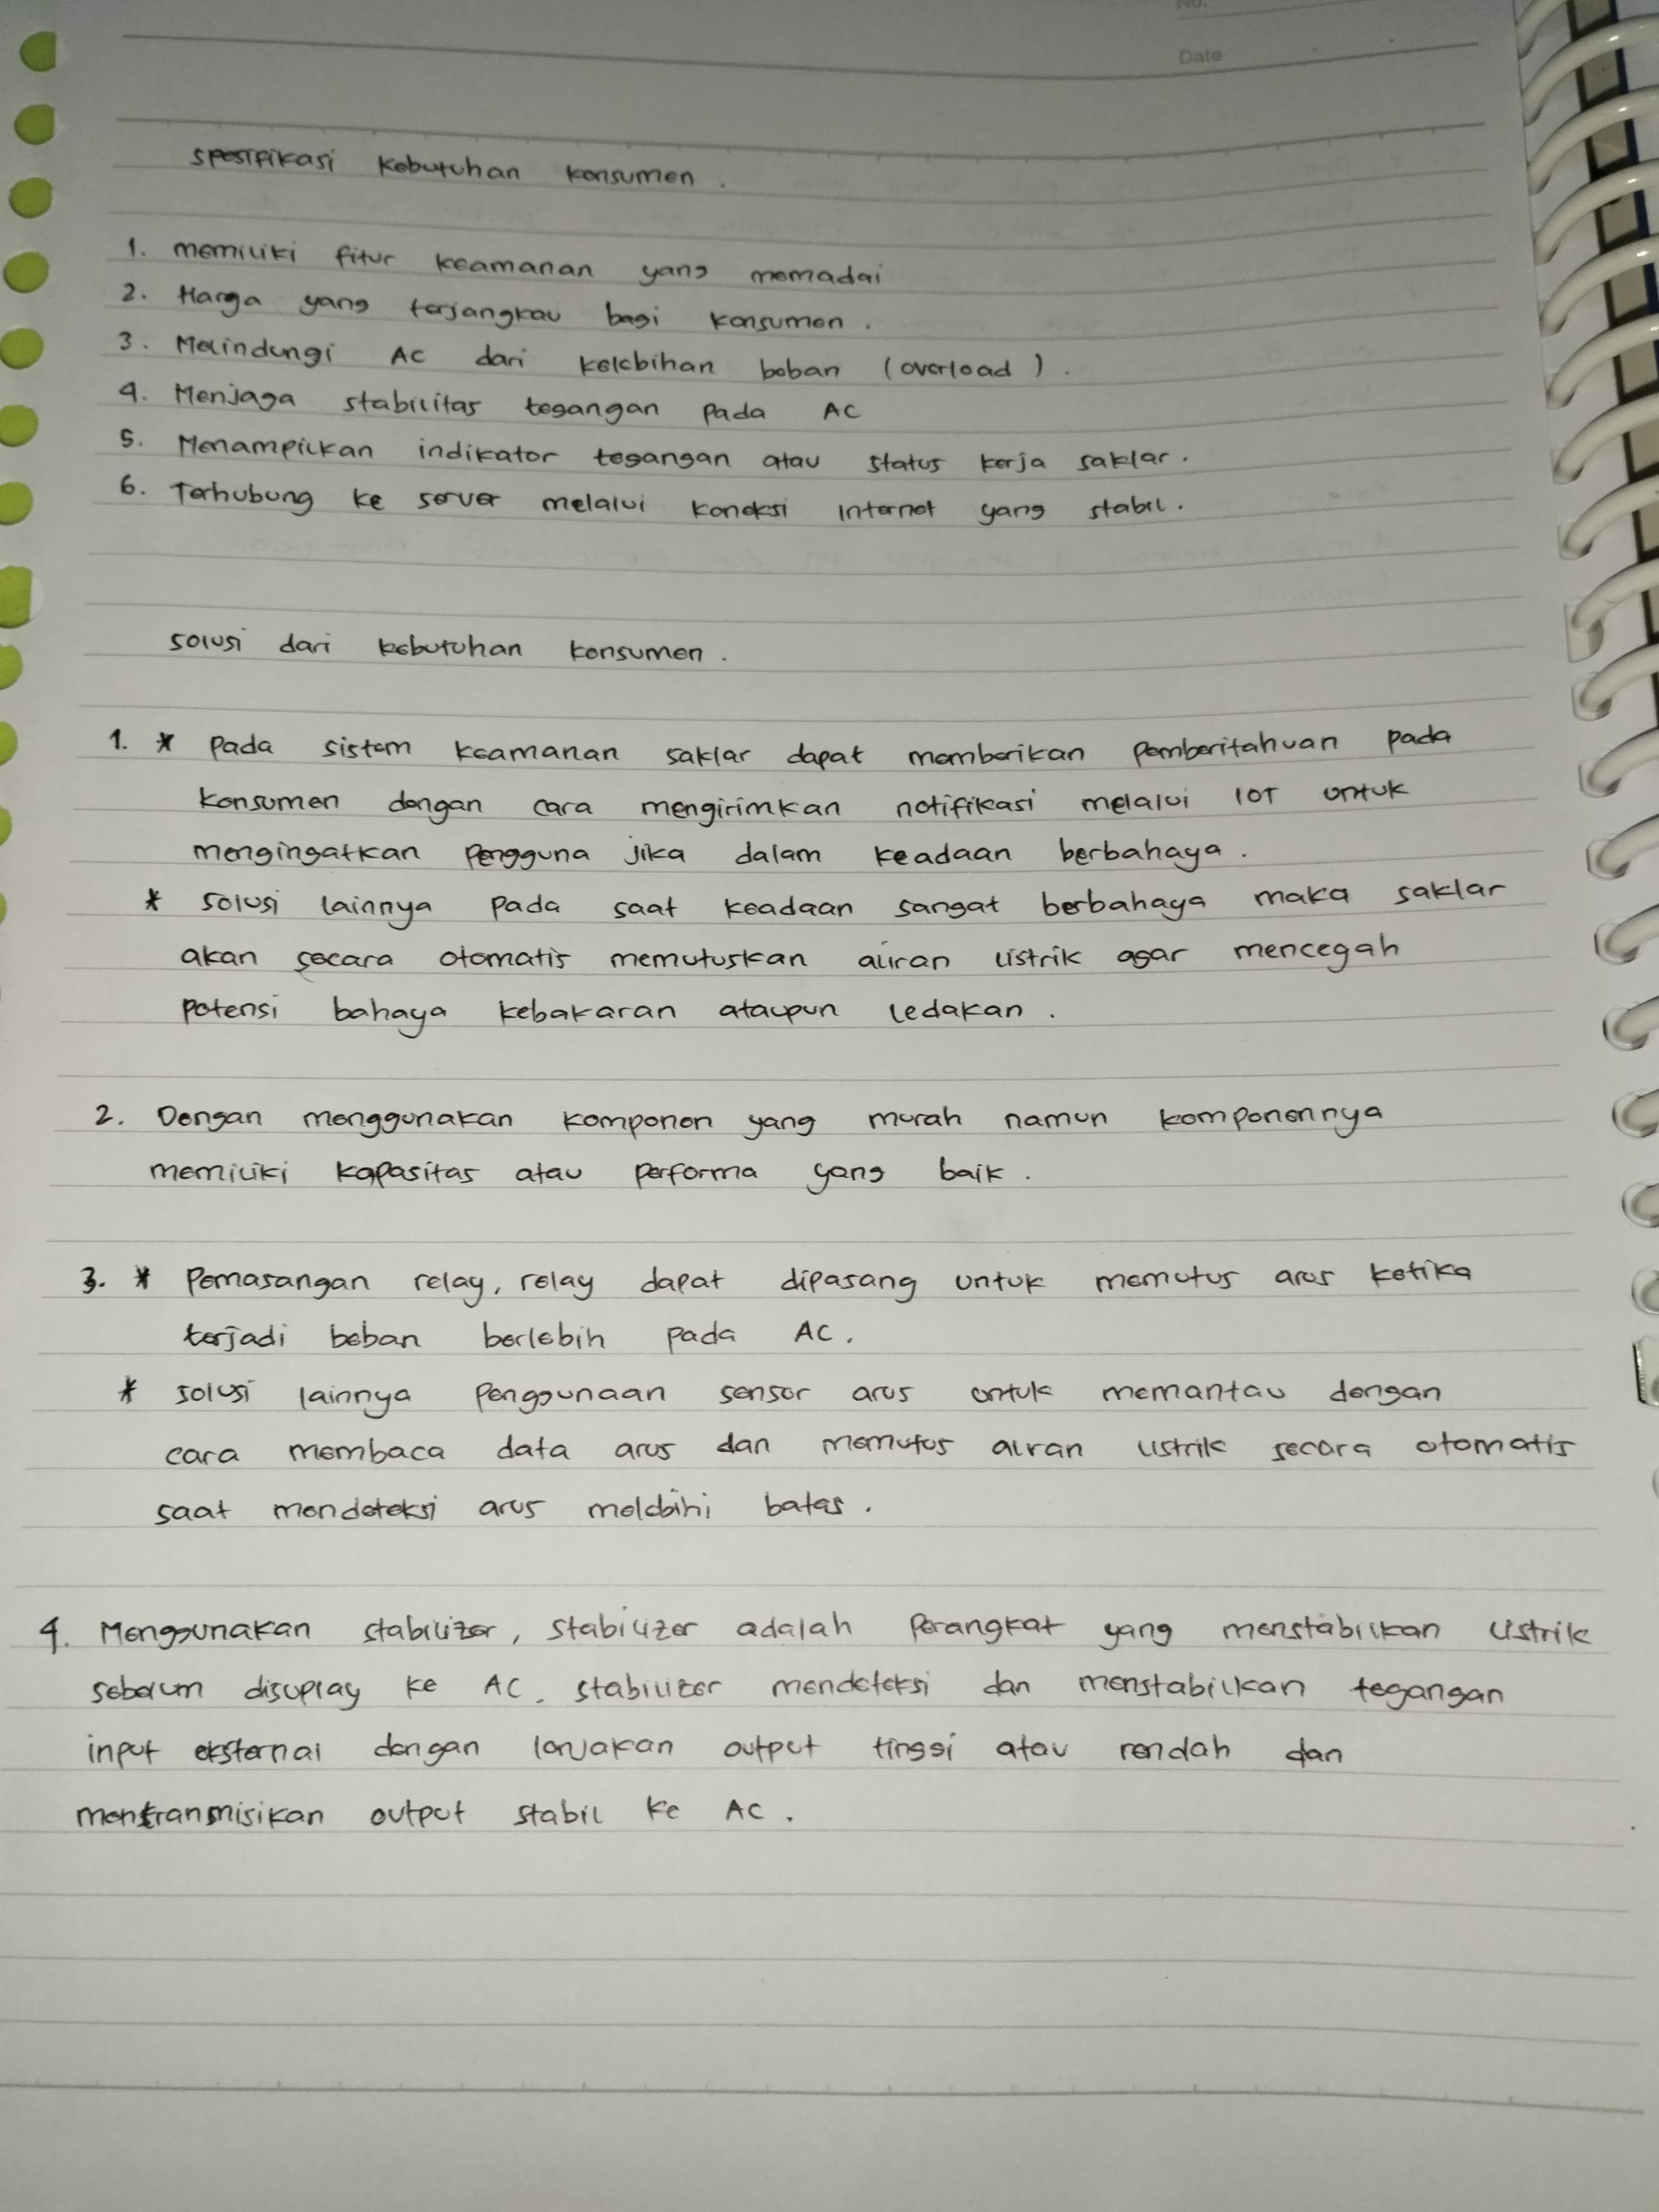 No.
Date
spesifikasi kebutuhan konsumen.
1. memiliki fitur keamanan yang memadai
2. Harga yang terjangkau bagi konsumen.
3. Melindungi AC dari kelebihan beban (overload).
4. Menjaga stabilitas tegangan pada AC
5. Menampilkan indikator tegangan atau status kerja saklar.
6. Terhubung ke server melalui koneksi internet yang stabil.
solusi dari kebutuhan konsumen.
1. * pada sistem keamanan saklar dapat memberikan pemberitahuan pada
konsumen dengan cara mengirimkan notifikasi melalui IOT untuk
mengingatkan pengguna jika dalam keadaan berbahaya.
* solusi lainnya pada saat keadaan sangat berbahaya maka saklar
akan secara otomatis memutuskan aliran listrik agar mencegah
potensi bahaya kebakaran ataupun ledakan.
2. Dengan menggunakan komponen yang murah namun komponennya
memiliki kapasitas atau performa yang baik.
3. * Pemasangan relay, relay dapat dipasang untuk memutus arus ketika
terjadi beban berlebih pada AC.
* solusi lainnya penggunaan sensor arus untuk memantau dengan
cara membaca data arus dan memutus aliran listrik secara otomatis
saat mendeteksi arus melebihi batas.
4. Menggunakan stabilizer, stabilizer adalah perangkat yang menstabilkan listrik
sebelum disuplay ke AC. stabilizer mendeteksi dan menstabilkan tegangan
input eksternal dengan lonjakan output tinggi atau rendah dan
mentransmisikan output stabil ke AC.